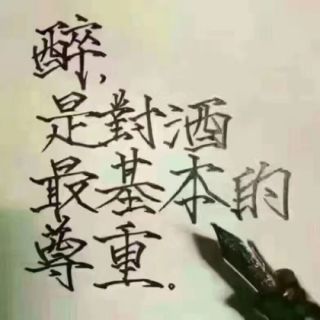 醉，
是對酒
最基本的
尊重。